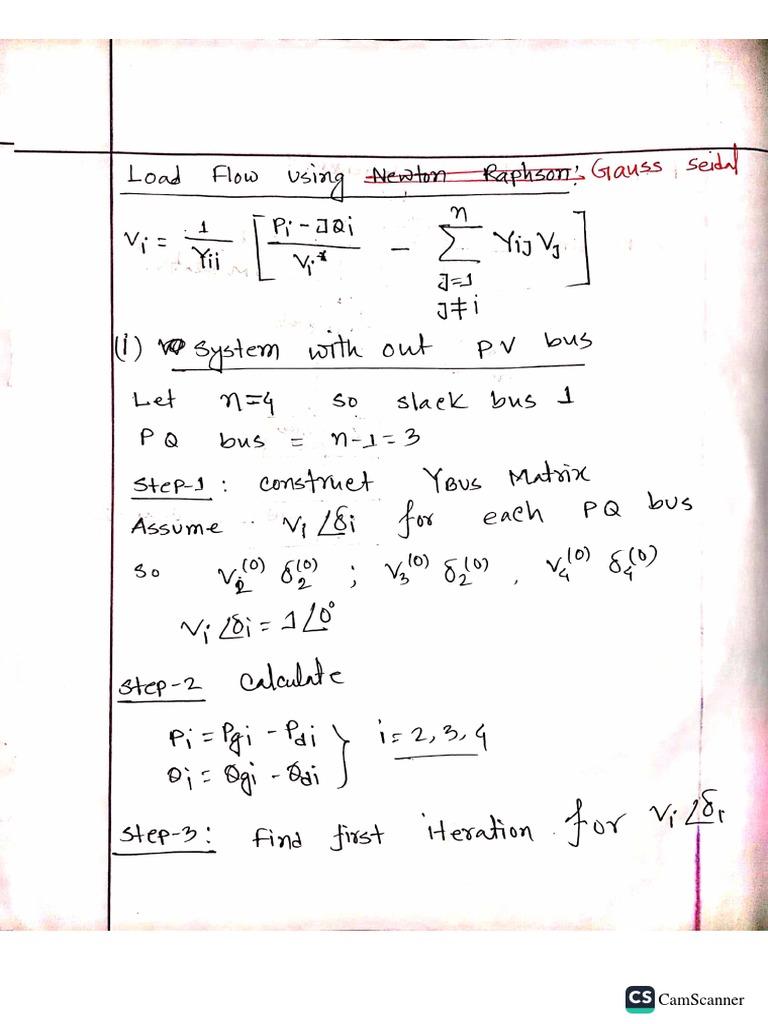 Load Flow using Newton Raphson: Gauss seidal
Vi = 1/Yii [ Pi - JQi / Vi* - Σ n J=1 J≠i YiJ VJ ]
(i) System with out PV bus
Let n=4 so slack bus 1
PQ bus = n-1 = 3
Step-1: construct YBUS Matrix
Assume Vi ∠δi for each PQ bus
So V2^(0) δ2^(0) ; V3^(0) δ2^(0) , V4^(0) δ4^(0)
Vi ∠δi = 1∠0°
Step-2 Calculate
Pi = Pgi - Pdi } i = 2, 3, 4
Qi = Qgi - Qdi
Step-3: Find first iteration for Vi ∠δi
CS CamScanner